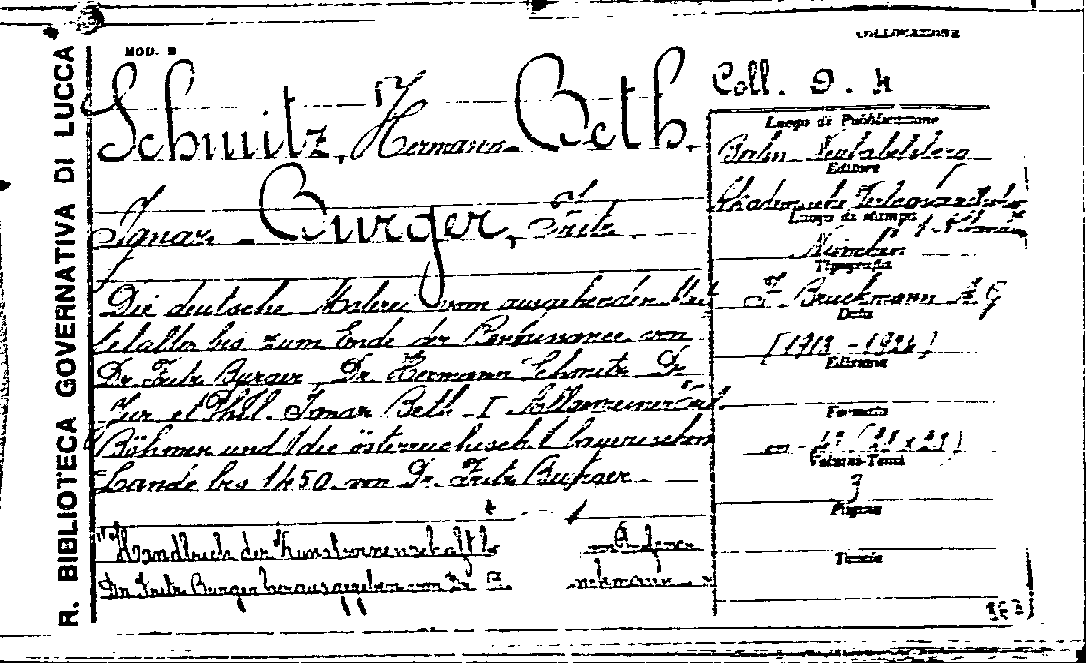 R. BIBLIOTECA GOVERNATIVA DI LUCCA
MOD. B
COLLOCAZIONE
Schmitz, Hermann - Beth,
Coll. D. 4
Ignaz - Burger, Fritz
Luogo di Pubblicazione
Berlin Neubabelsberg
Editore
Akademische
Luogo di stampa
München
Tipografia
F. Bruckmann A G
Data
[1913 - 1924]
Edizione
Die deutsche Malerei vom ausgehenden Mit
telalter bis zum Ende der Renaissance von
Dr Fritz Burger Dr Hermann Schmitz Dr
Jur et Phil. Ignaz Beth - I Allgemeiner Teil
Böhmen und die österreichisch bayerischen
Lande bis 1450 von Dr. Fritz Burger
Formato
Volume-Tomi
3
Pagine
Tavole
"Handbuch der Kunstwissenschaft
Dr Fritz Burger herausgegeben von Dr